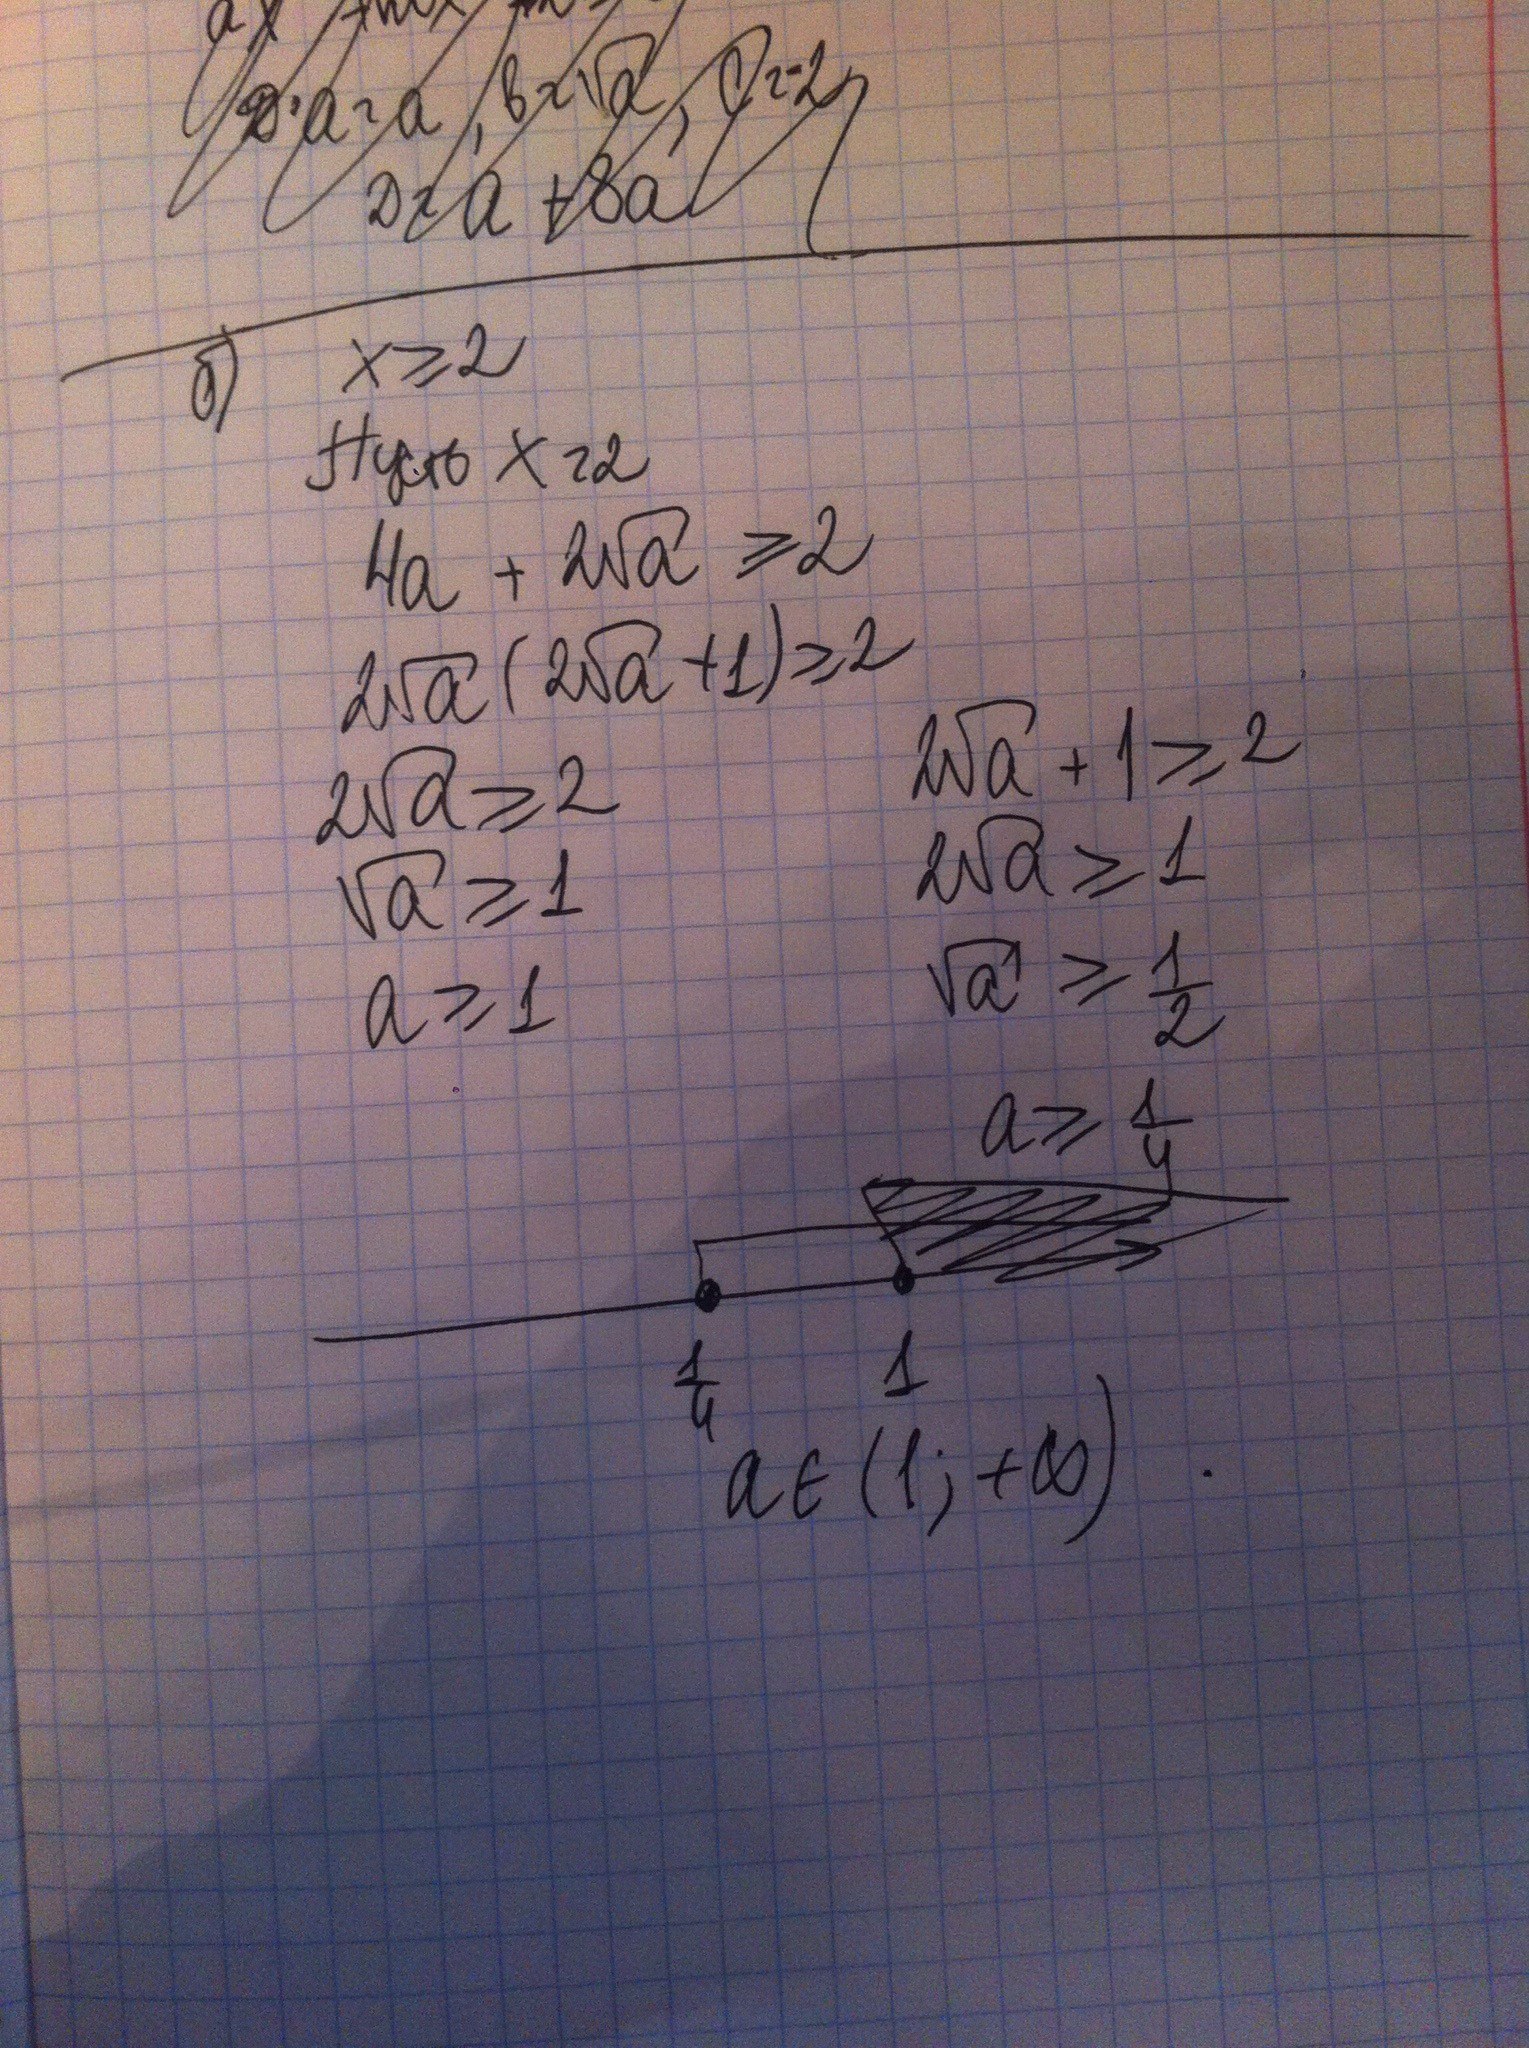 D: a = a, b = √a, c = -2
D = a + 8a
б) x ≥ 2
Пусть x = 2
4a + 2√a ≥ 2
2√a (2√a + 1) ≥ 2
2√a ≥ 2
√a ≥ 1
a ≥ 1
2√a + 1 ≥ 2
2√a ≥ 1
√a ≥ 1/2
a ≥ 1/4
1/4 1
a ∈ (1; +∞)